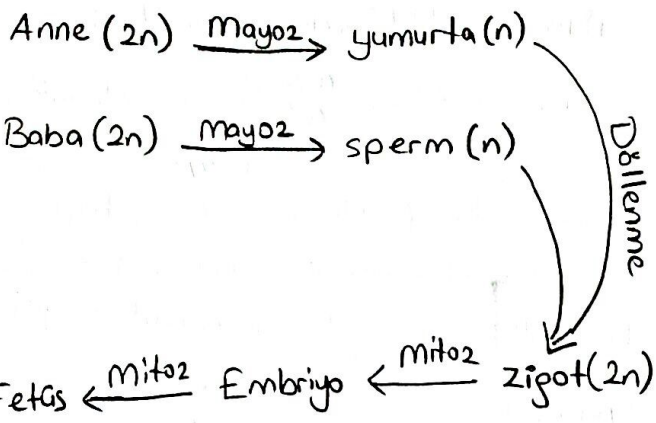 Anne (2n) Mayoz yumurta (n)
Baba (2n) mayoz sperm (n)
Döllenme
Fetüs mitoz Embriyo mitoz zigot (2n)